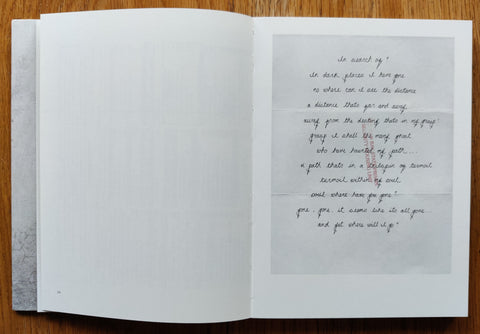 In search of "
In dark places I have gone
no where can I see the distance
a distance thats far and away
away from the destiny thats in my grasp!
grasp it shall the many ghost
who have haunted my path....
A path thats in a of turmoil
turmoil within my soul
soul where have you gone"
gone, gone, it seems like its all gone...
and yet where will it go"